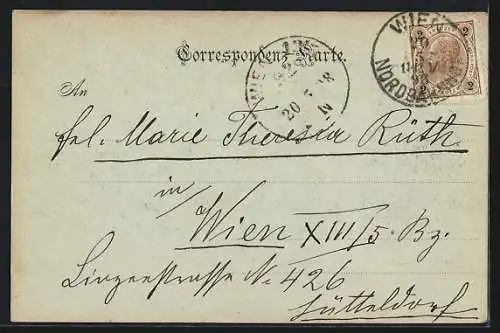 Correspondenz-Karte.
2 2
2 2
WIEN
NORDBAHNHOF
WIEN
20 5 98
An
frl. Marie Theresia Rüth
in
Wien XIII/5. Bz.
Linzerstrasse No. 426
Hütteldorf